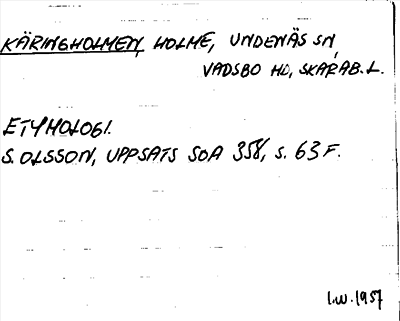 KÄRINGHOLMEN, HOLME, UNDENÄS SN,
VADSBO HD, SKARAB. L.
ETYMOLOGI.
S. OLSSON, UPPSATS SOA 358, S. 63 F.
I.W. 1957